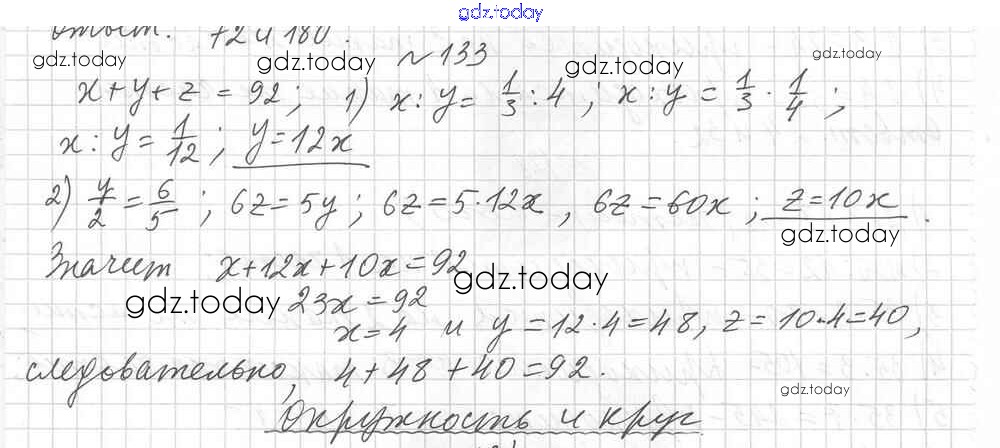 gdz.today
Ответ: 72 и 180.
gdz.today gdz.today № 133 gdz.today gdz.today
x+y+z=92; 1) x:y=1/3:4; x:y=1/3·1/4;
x:y=1/12; y=12x
2) y/z=6/5; 6z=5y; 6z=5·12x, 6z=60x; z=10x.
gdz.today
Значит x+12x+10x=92
gdz.today 23x=92 gdz.today
x=4 и y=12·4=48, z=10·4=40,
следовательно, 4+48+40=92.
gdz.today
Окружность и круг